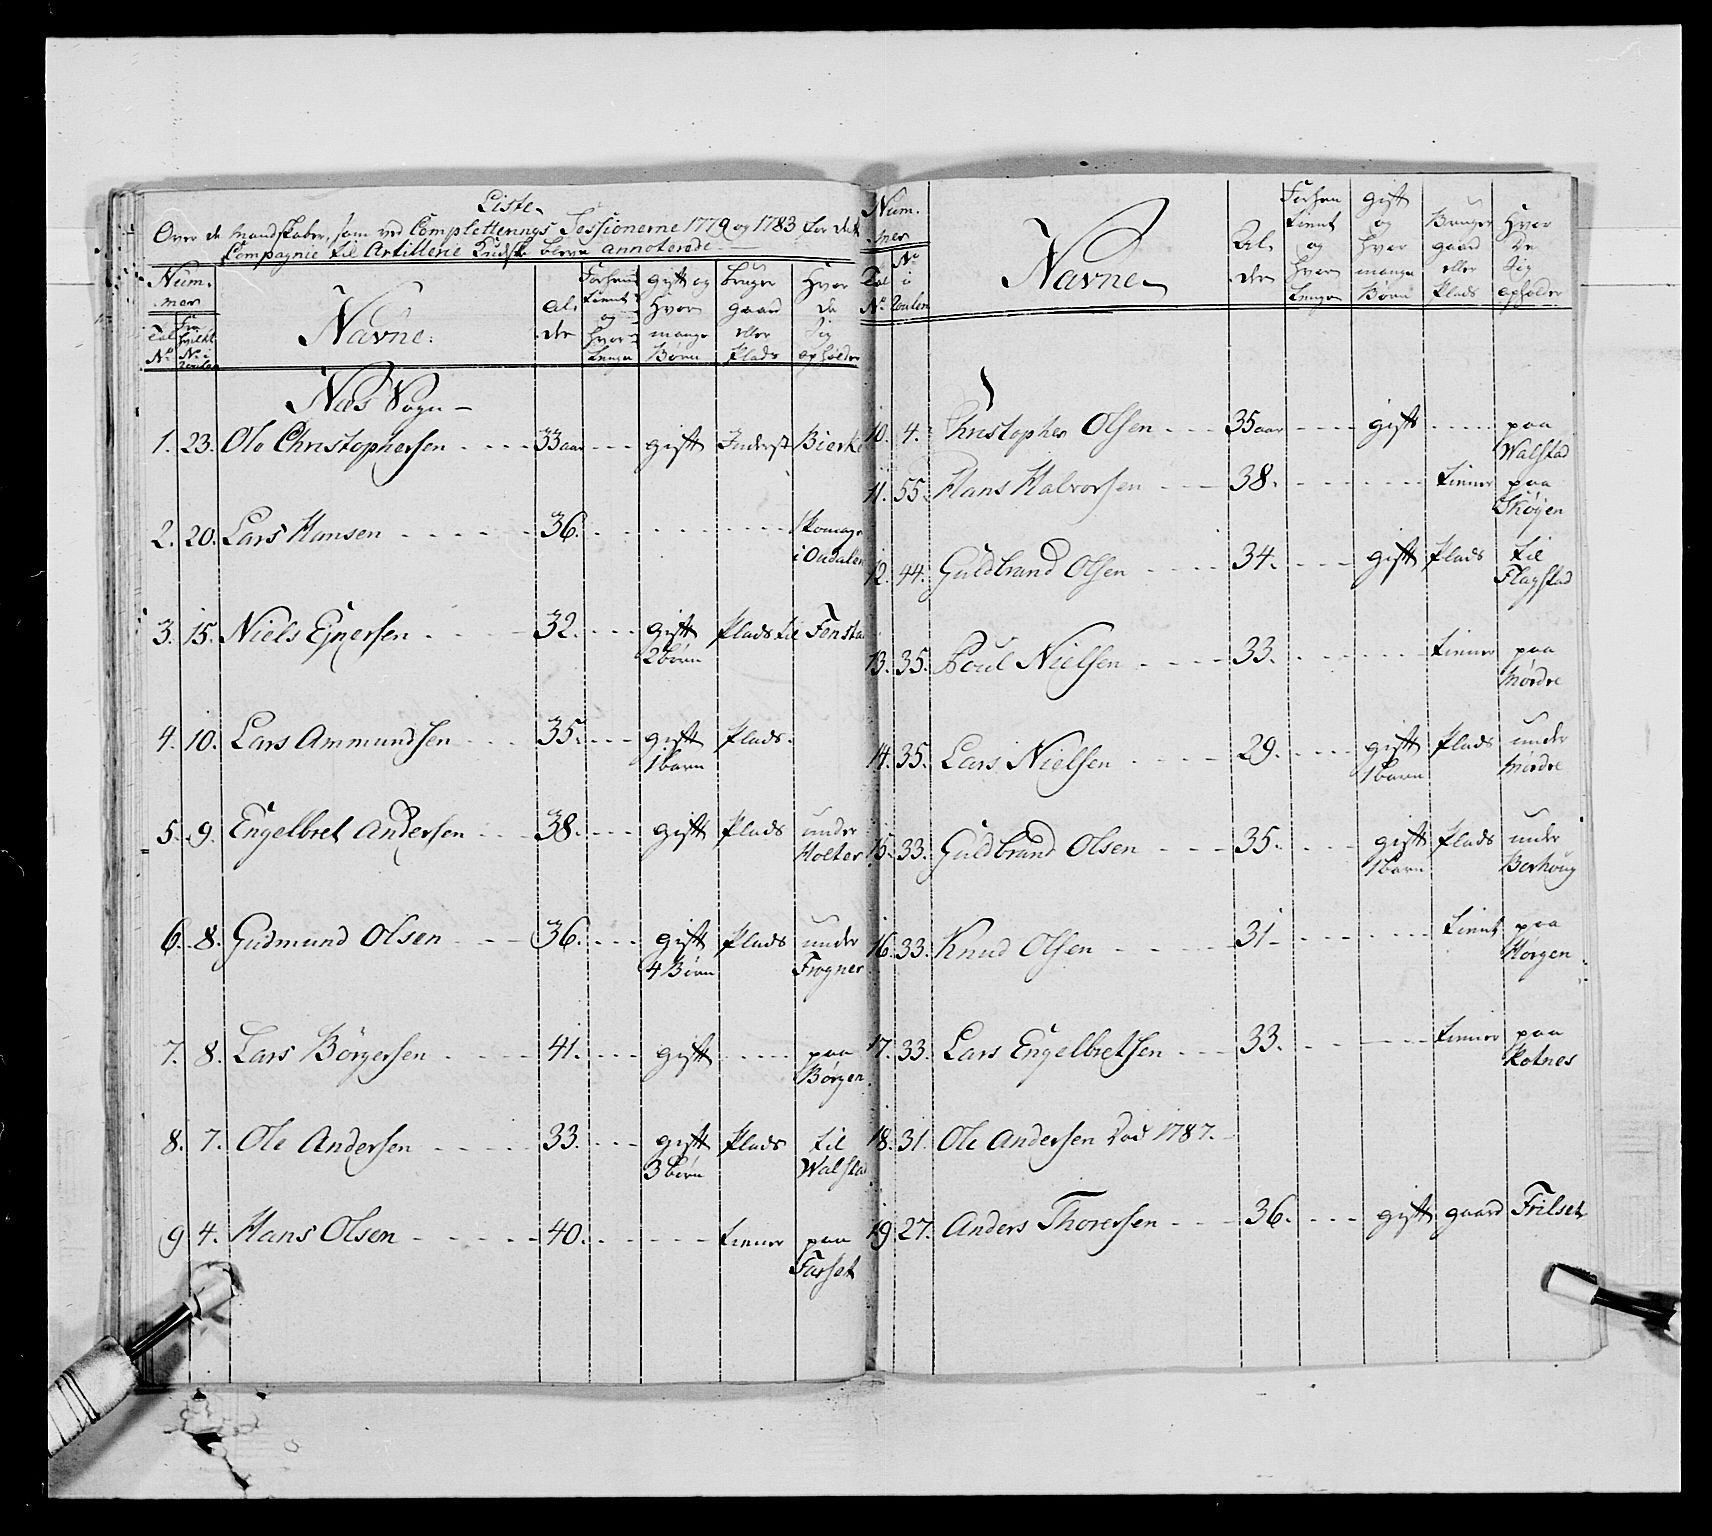 Liste
Over de Mandskaber, som ved Completterings Sessionerne 1779 og 1783 for dette
Compagnie til Artillerie Kudske bleve annoterede
Num.
mer
Tal
No
Fra
hvilket
No i
Roulen
Navne.
Al.
der
Forhen
tient
og
hvor
Lenge
gift og
hvor
mange
Børn
bruger
gaard
eller
Plads
Hvor
de
sig
opholder
Næs Sogn
1. 23. Ole Christophersen 33 aar gift Inderst Bierke
2. 20. Lars Hansen 36. Skomager
i Oudalen
3. 15. Niels Ejnersen 32. gift Plads til Fensta
2 børn
4. 10. Lars Ammundsen 35. gift Plads.
1 barn
5. 9. Engelbret Andersen 38. gift Plads under
Holter
6. 8. Gudmund Olsen 36. gift Plads under
4 Børn Frogner
7. 8. Lars Børgersen 41. gift paa
Børgen
8. 7. Ole Andersen 33. gift Plads til
3 børn Walsta
9 4. Hans Olsen 40. tiener paa
Farset
Num.
mer
Tal
No
No
i
Roulen
Navne
Al.
der
Forhen
tient
og
hvor
Lenge
gift
og
hvor
mange
Børn
Bruger
gaard
eller
Plads
Hvor
De
sig
opholder
10. 4. Christopher Olsen 35 aar gift paa
Walstad
11. 55. Hans Halvorsen 38. tiener paa
Skøyen
12. 44. Guldbrand Olsen 34. gift Plads til
Flagstad
13. 35. Poul Nielsen 33. tiener paa
Mørdre
14. 35. Lars Nielsen 29. gift Plads under
1 barn Mørdre
15. 33. Guldbrand Olsen 35. gift Plads under
1 barn Berhoug
16. 33. Knud Olsen 31 tient paa
Hørgen
17. 33. Lars Engelbretsen 33. tiener paa
Skotnes
18. 31. Ole Andersen Død 1787.
19 27. Anders Thoresen 36. gift gaard Frilset